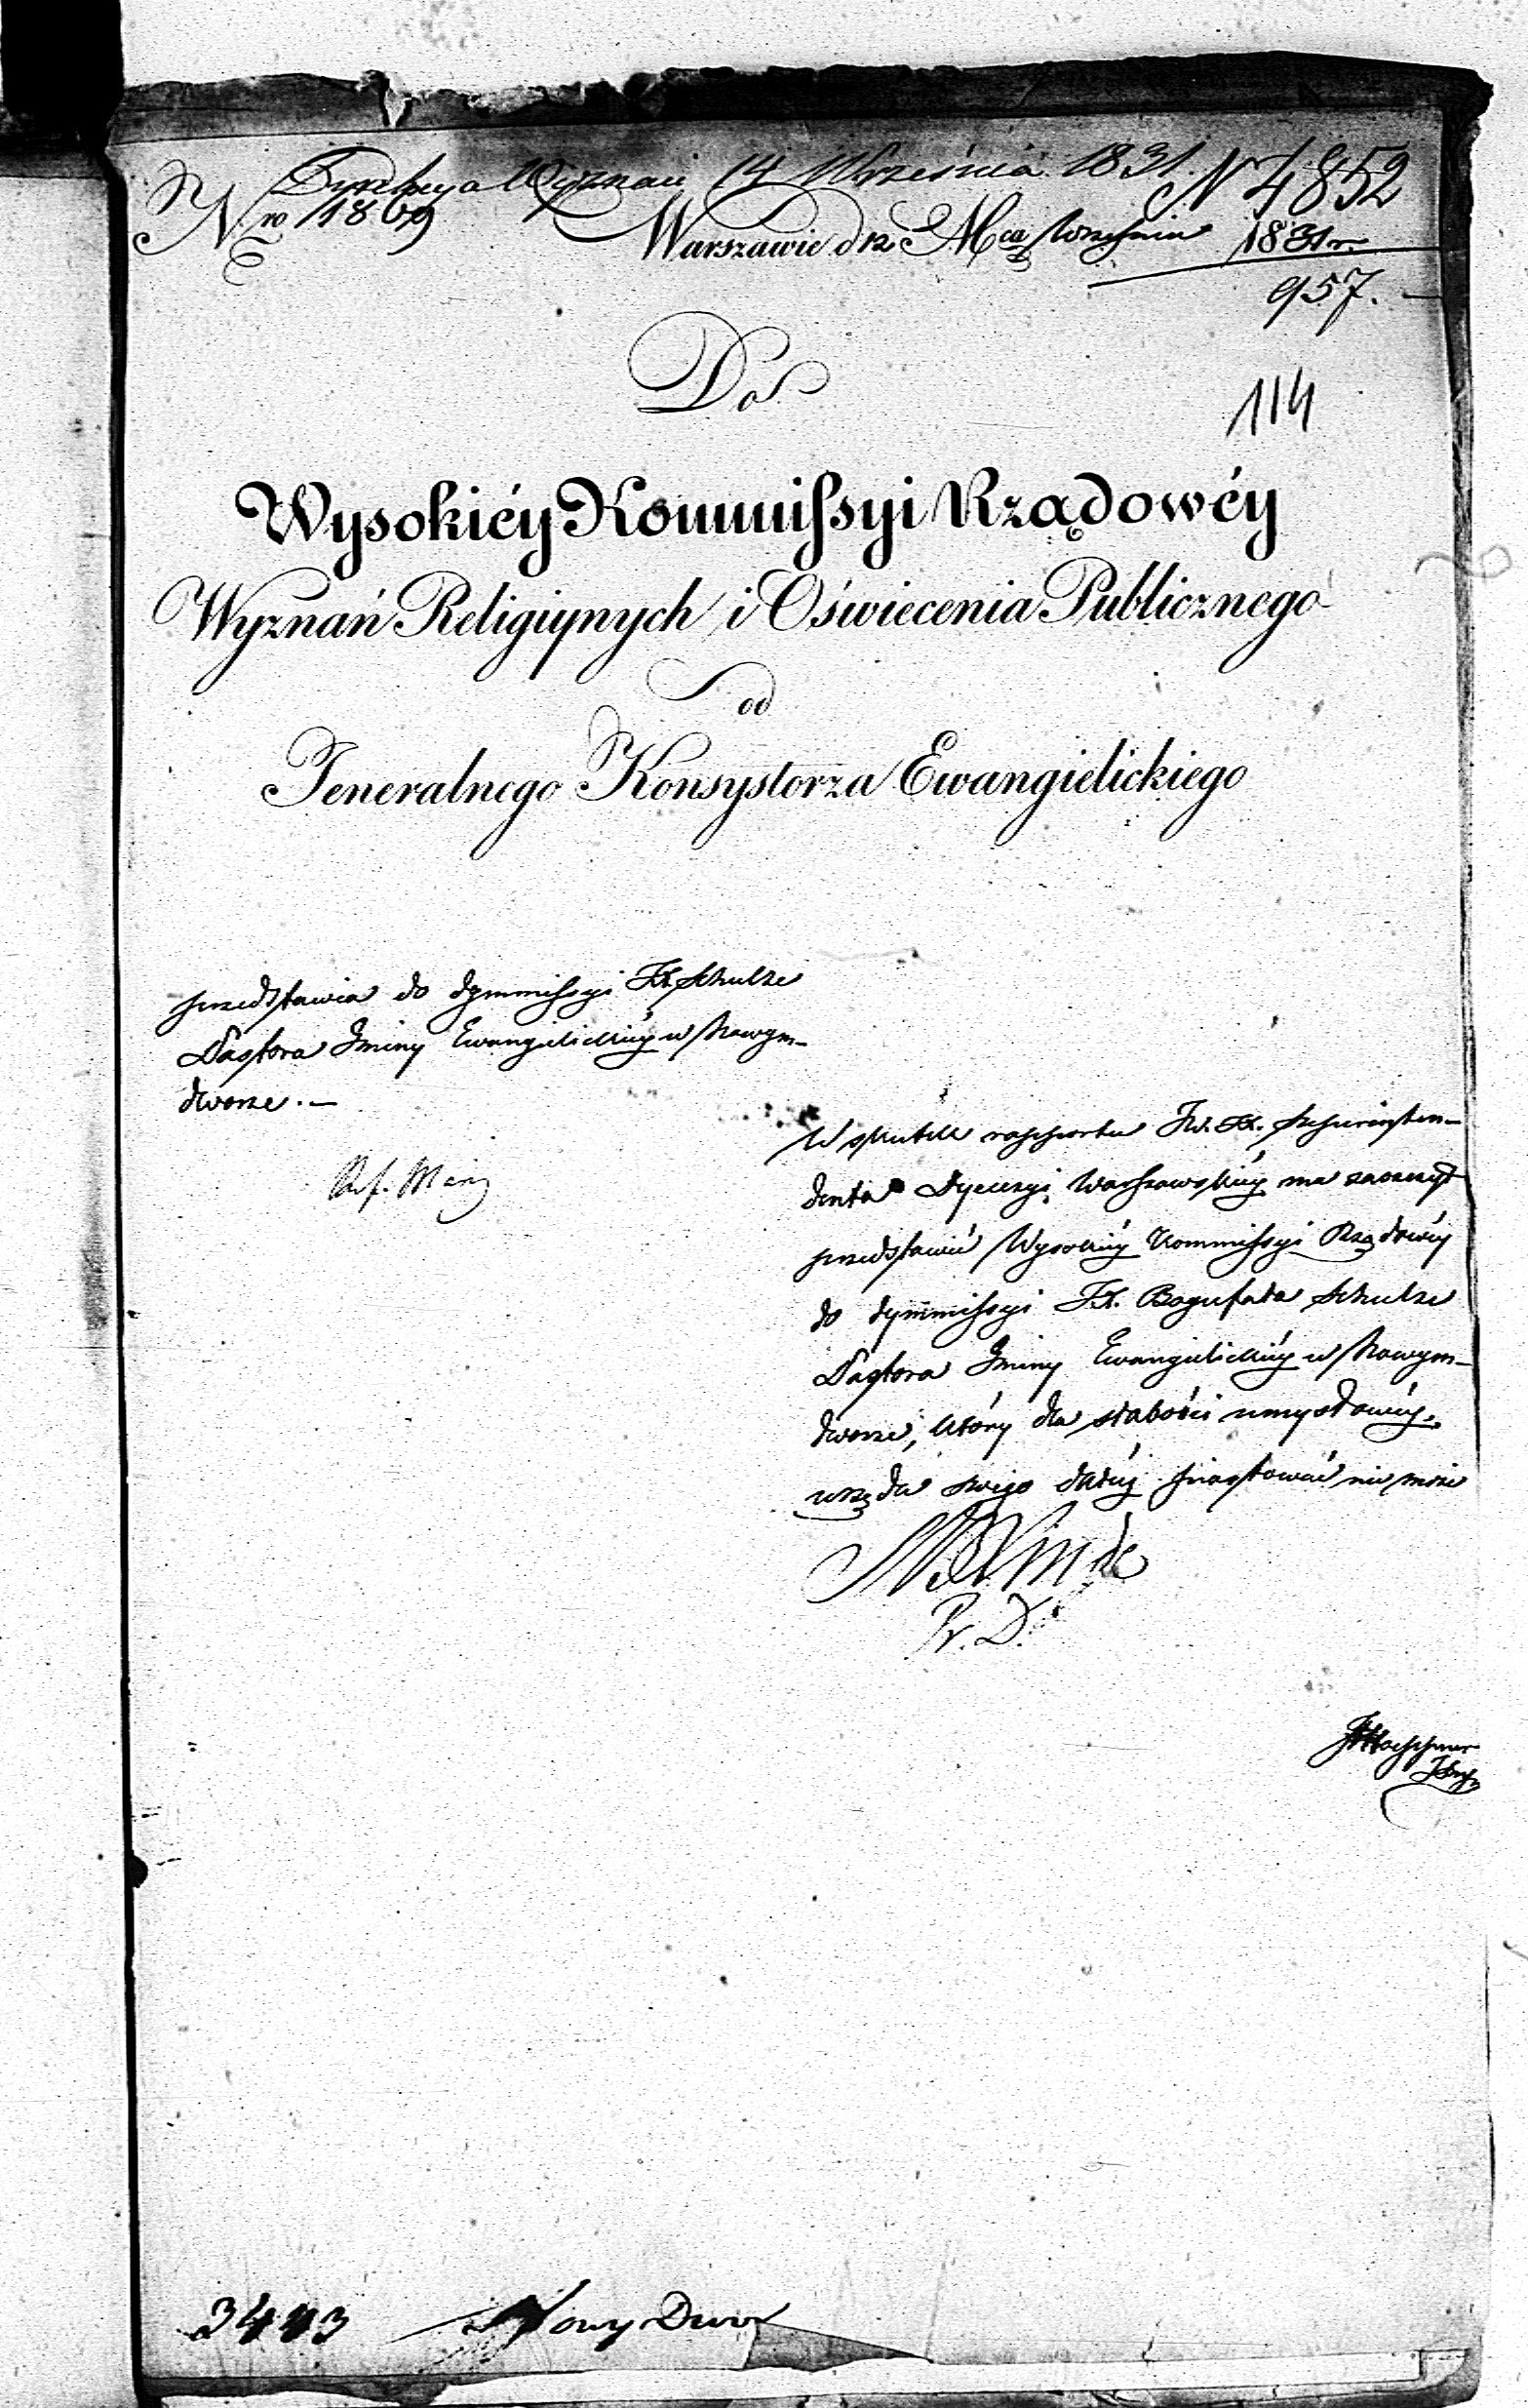 Dyrekcya Wyznań 14 Września 1831. N 4852
Nro 1869 Warszawie d 12 Mca Września 1831 r.
957.
Do
114
Wysokiéy Kommissyi Rządowéy
Wyznań Religiynych i Oświecenia Publicznego
od
Jeneralnego Konsystorza Ewangielickiego
przedstawia do dymmissyi JX. Schulze
Pastora Gminy Ewangielickiéy w Nowym-
dworze. —
Ref.
W skutek rapportu JW. JX. Superinten-
denta Dyecezyi Warszawskiéy ma zaszczyt
przedstawić Wysokiéy Kommissyi Rządowéy
do dymmissyi JX. Bogufała Schulze
Pastora Gminy Ewangielickiéy w Nowym-
dworze, który dla słabości umysłowéy,
urzędu swego daléy piastować nie może
Linde
Pr. D.
3443 Nowy Dwor